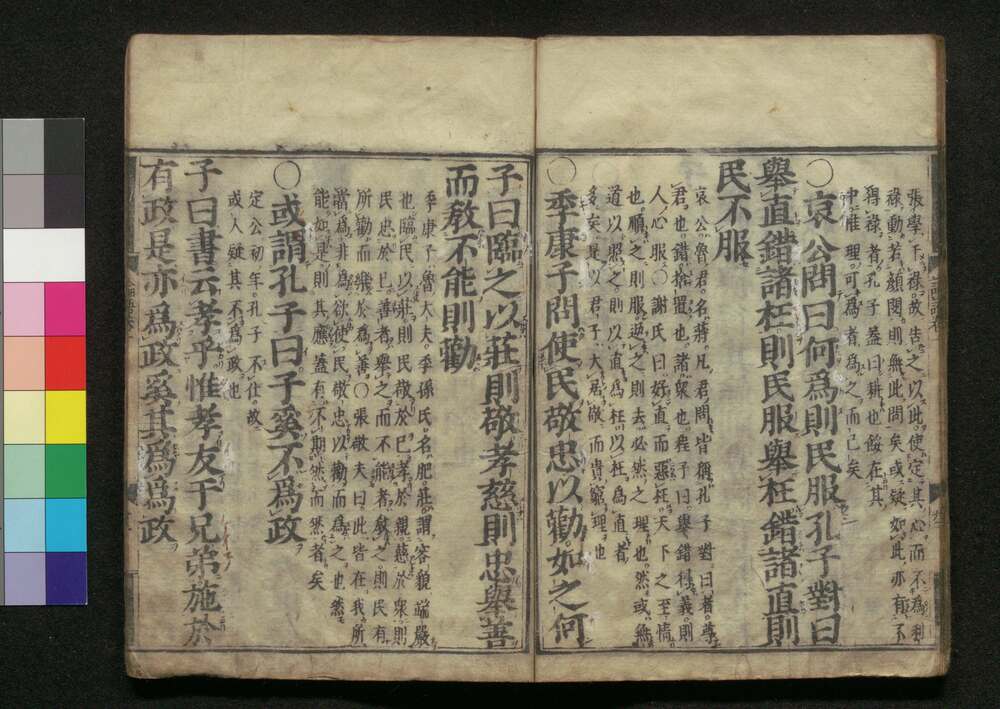 張學干祿故告之以此使定其心而不為利
祿動若顏閔則無此問矣或疑如此亦有不
得祿者孔子蓋曰耕也餒在其
中惟理可為者為之而已矣
○哀公問曰何為則民服孔子對曰
舉直錯諸枉則民服舉枉錯諸直則
民不服
哀公魯君名蔣凡君問皆稱孔子對曰者尊
君也錯捨置也諸眾也程子曰舉錯得義則
人心服○謝氏曰好直而惡枉天下之至情
也順之則服逆之則去必然之理也然或無
道以照之則以直為枉以枉為直者
多矣是以君子大居敬而貴窮理也
○季康子問使民敬忠以勸如之何
子曰臨之以莊則敬孝慈則忠舉善
而教不能則勸
季康子魯大夫季孫氏名肥莊謂容貌端嚴
也臨民以莊則民敬於己孝於親慈於眾則
民忠於己善者舉之而不能者教之則民有
所勸而樂於為善○張敬夫曰此皆在我所
當為非為欲使民敬忠以勸而為之也然
能如是則其應蓋有不期然而然者矣
○或謂孔子曰子奚不為政
定公初年孔子不仕故
或人疑其不為政也
子曰書云孝乎惟孝友于兄弟施於
有政是亦為政奚其為為政